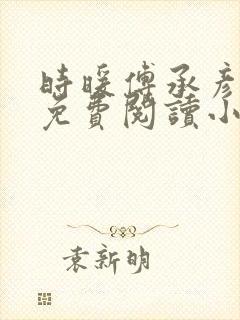 時暖傅承彥
免費閱讀小
袁新明